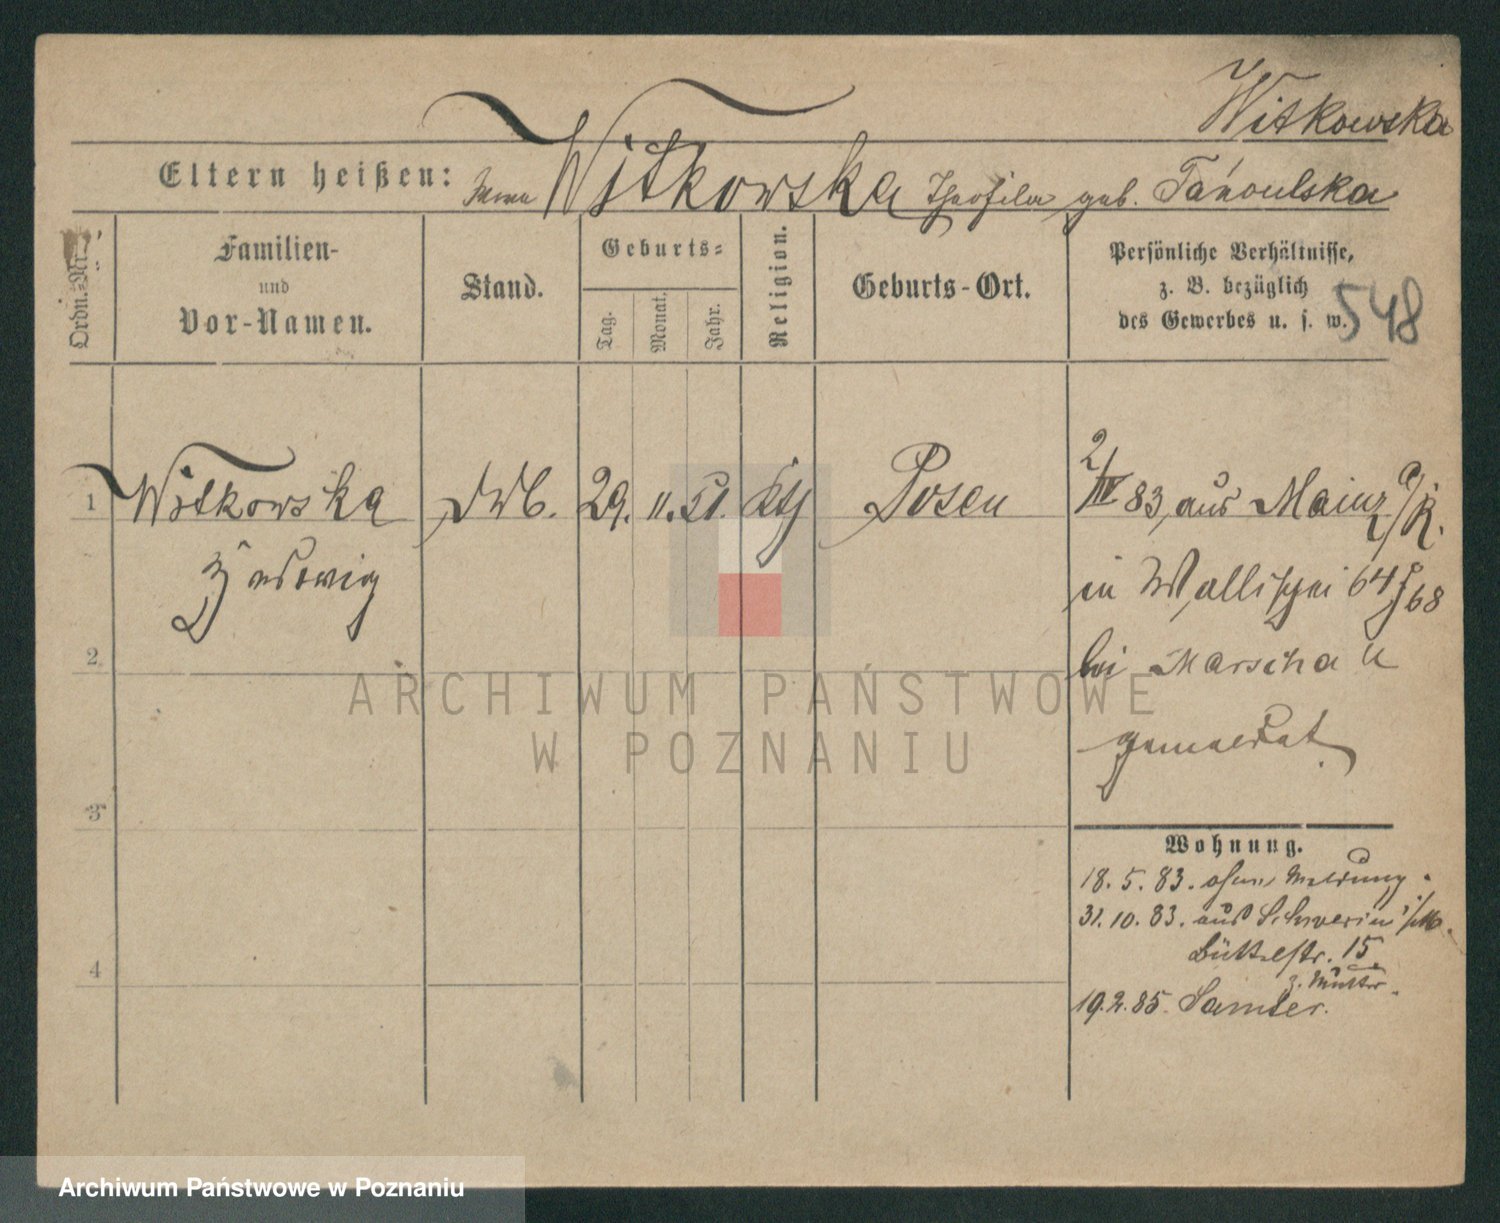 Witkowska
Eltern heißen: Witkowska Theofila geb.
Ordn.-Nr.
Familien-
und
Vor-Namen.
Stand.
Geburts-
Tag.
Monat.
Jahr.
Religion.
Geburts-Ort.
Persönliche Verhältnisse,
z. B. bezüglich
des Gewerbes u. s. w.
548
1 Witkowska 29. 11. 51. kth Posen 2/IV 83, aus Mainz a/R.
Hedwig
in Wallischei 64 68
2
bei
gemeldet.
3
Wohnung.
18. 5. 83. ohne Meldung.
31. 10. 83. aus Schwerin
Büttelstr. 15
4
z. Mutter.
19. 2. 85. Samter.
ARCHIWUM PAŃSTWOWE
W POZNANIU
Archiwum Państwowe w Poznaniu